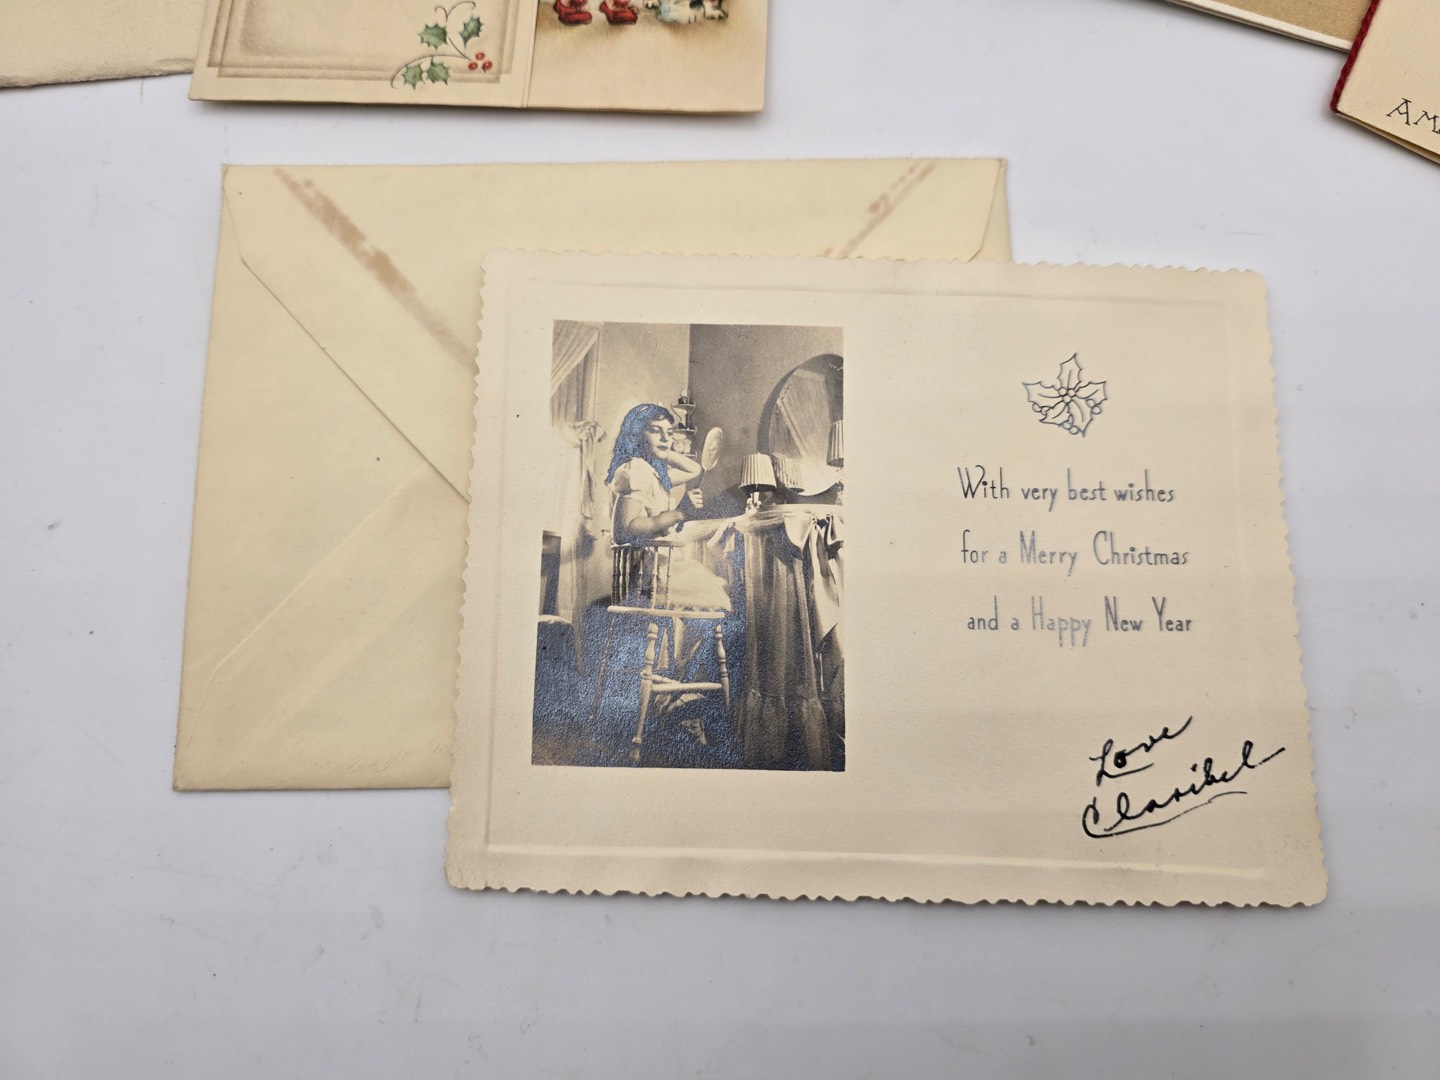 With very best wishes
for a Merry Christmas
and a Happy New Year
Love
Claribel